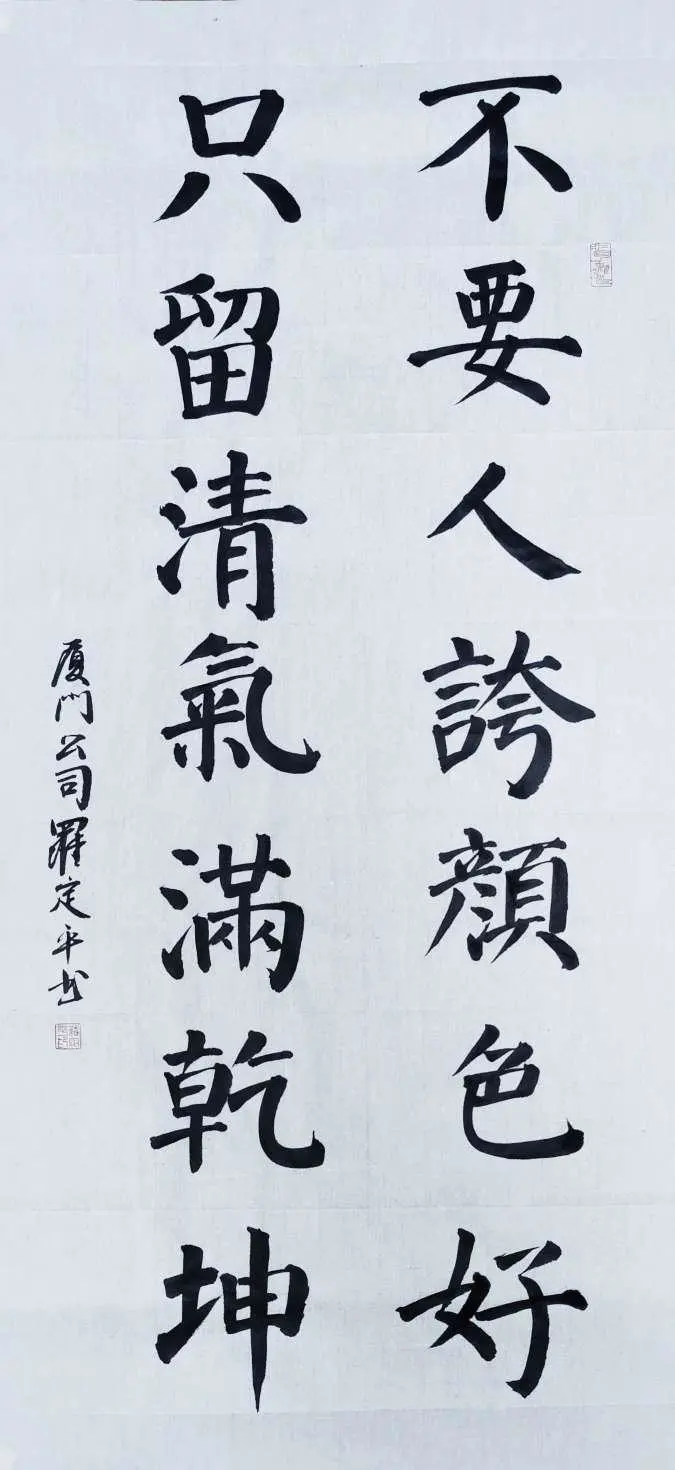 不要人誇顔色好
只留清氣滿乾坤
厦门公司羅定平书